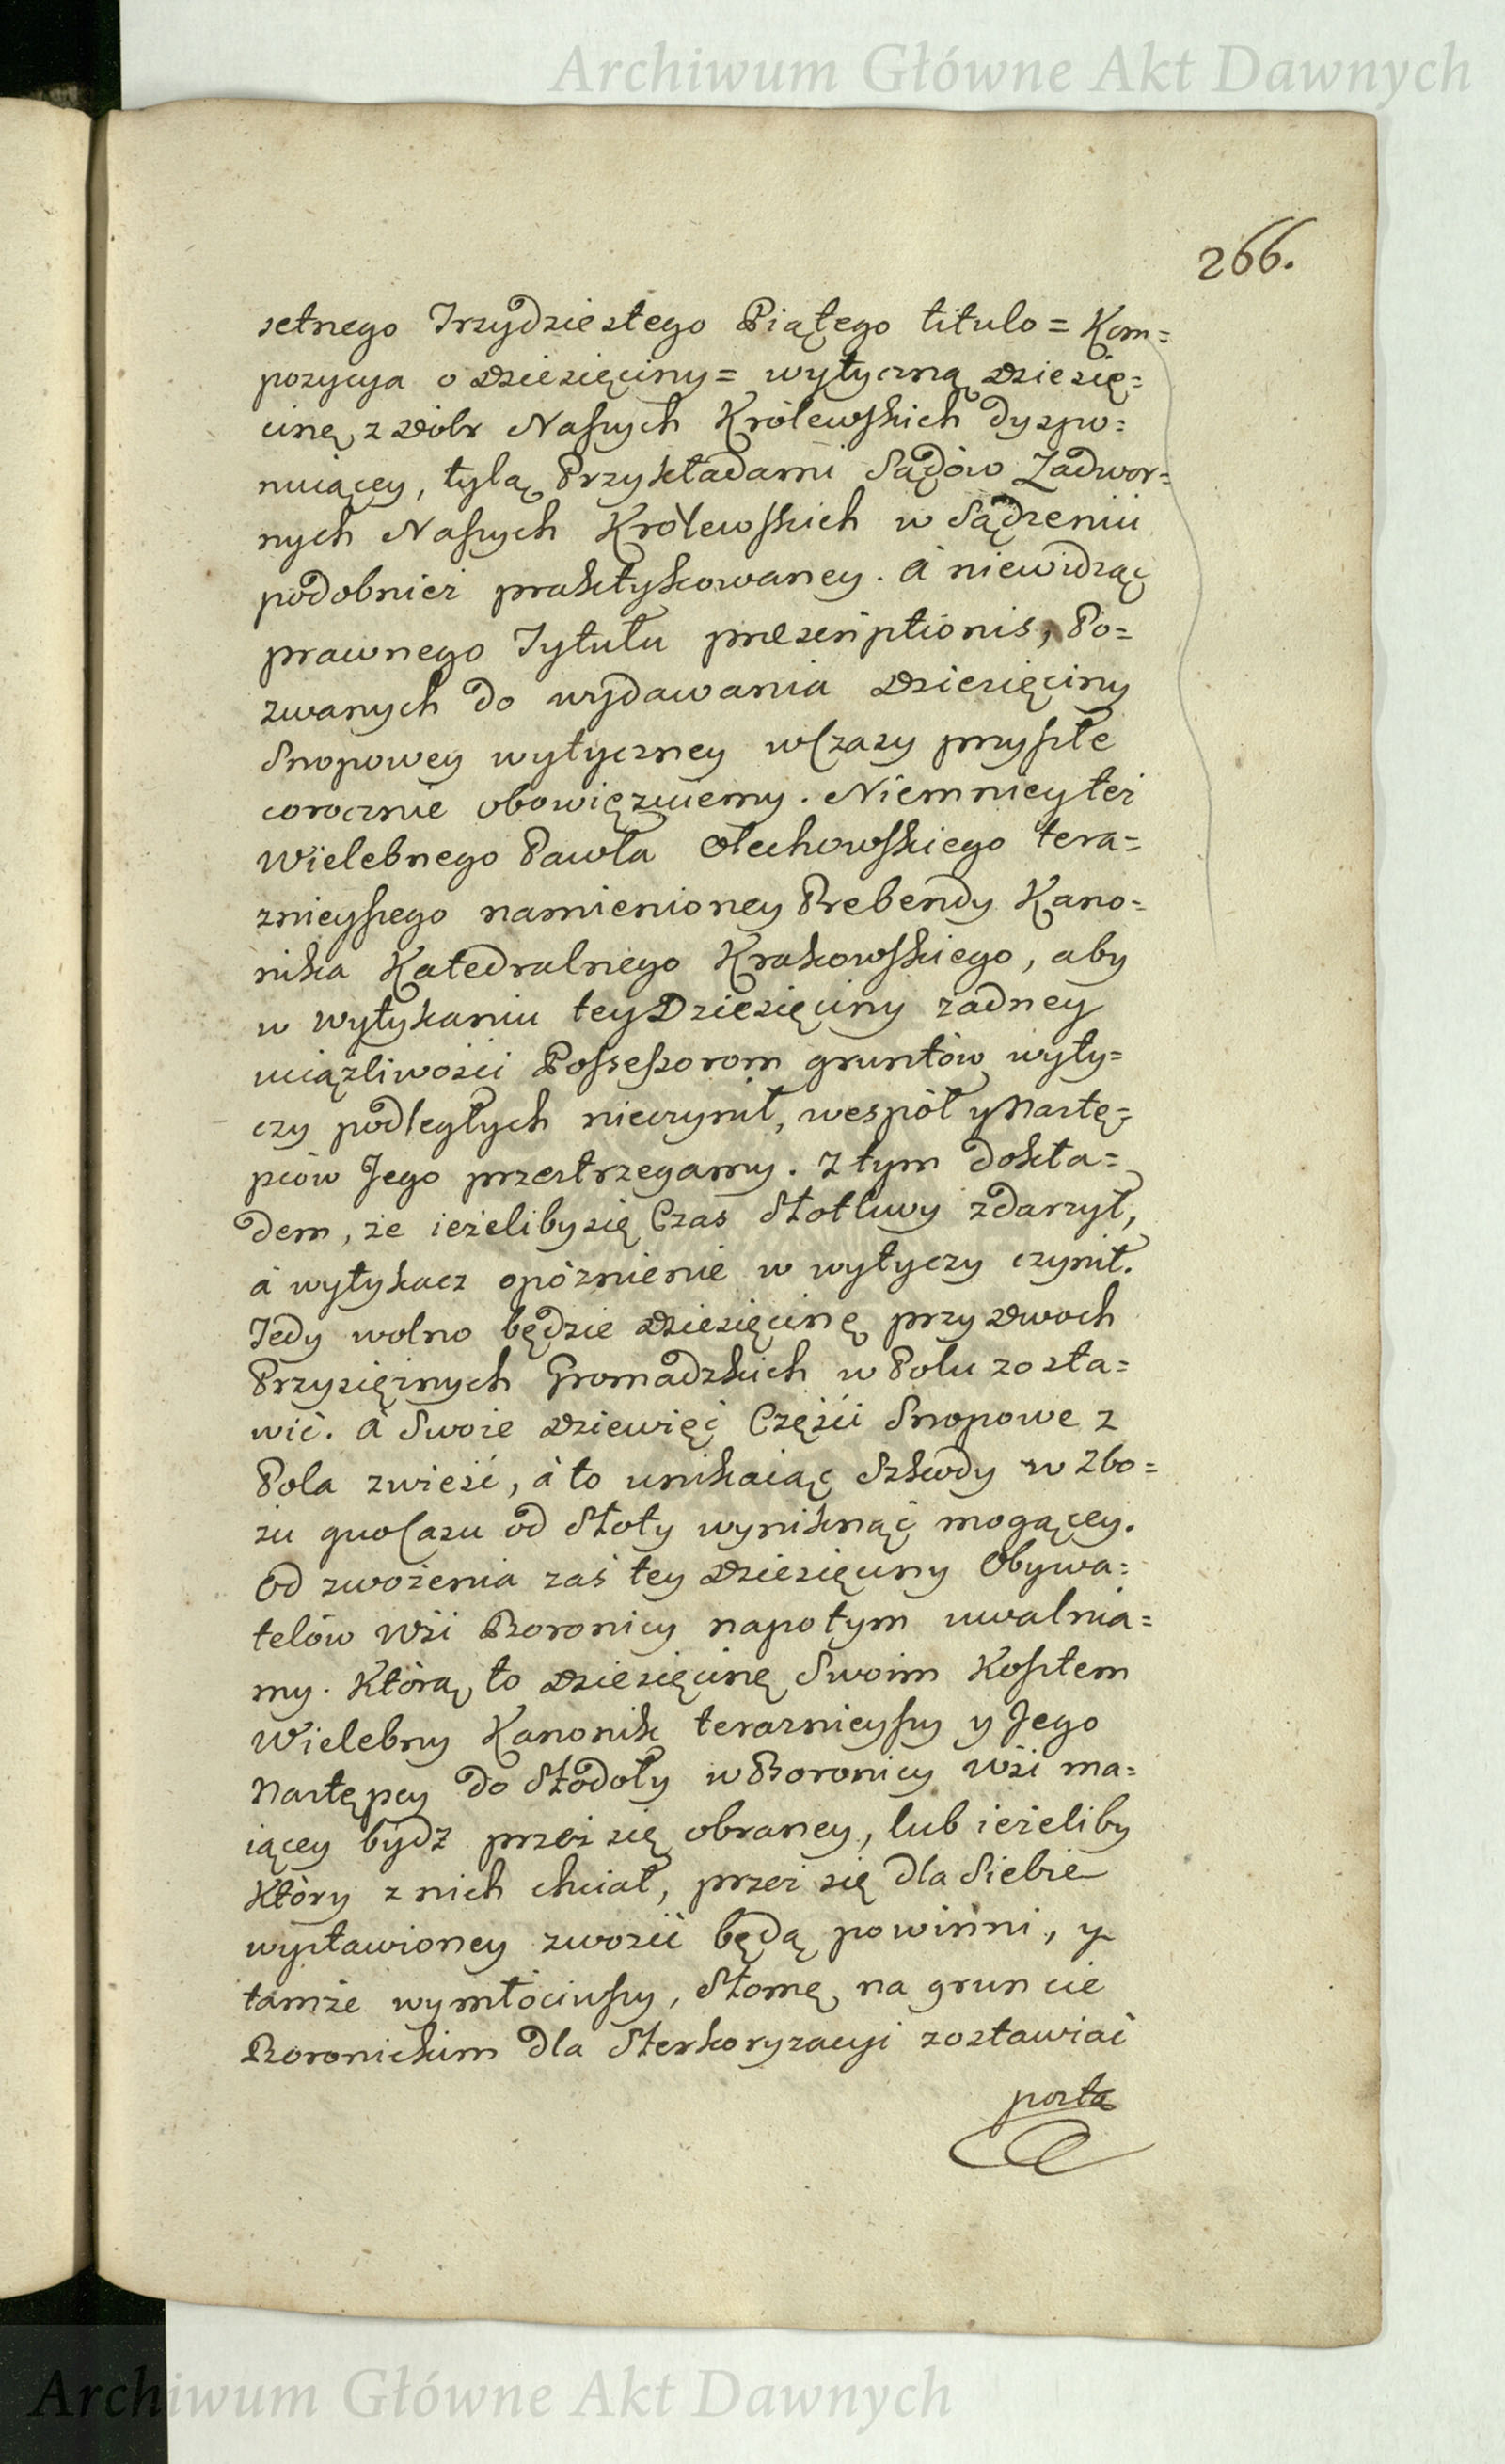 Archiwum Główne Akt Dawnych
266.
setnego Trzydziestego Piątego titulo = Kom=
pozycya o Dziesięciny = wytyczną Dziesię=
cinę z Dóbr Naszych Królewskich dyspo=
nuiącey, tylą Przykładami Sądów Zadwor=
nych Naszych Królewskich w Sądzeniu
podobnież praktykowaney. A niewidząc
prawnego Tytułu præscriptionis, Po=
zwanych do wydawania Dziesięciny
Snopowey wytyczney w Czasy przyszłe
corocznie obowięzuiemy. Niemniey też
Wielebnego Pawła Olechowskiego tera=
znieyszego namienioney Prebendy Kano=
nika Katedralnego Krakowskiego, aby
w wytykaniu tey Dziesięciny żadney
uciążliwości Possessorom gruntów wyty=
czy podległych nieczynił, wespół y Nastę=
pców Jego przestrzegamy. Z tym dokła=
dem, że ieżeliby się Czas Słotliwy zdarzył,
á wytykacz opóznienie w wytyczy czynił.
Tedy wolno będzie Dziesięcinę przy Dwoch
Przysiężnych Gromadzkich w Polu zosta=
wić. A Swoie Dziewięć Części Snopowe z
Pola zwieść, á to unikaiąc Szkody w Zbo=
żu quo Casu od Słoty wyniknąć mogącey.
Od zwożenia zaś tey Dziesięciny Obywa=
telów Wsi Boronicy napotym uwalnia=
my. Którą to Dziesięcinę Swoim Kosztem
Wielebny Kanonik teraznieyszy y Jego
Następcy do Stodoły w Boronicy Wsi ma=
iącey bydz przez się obraney, lub ieżeliby
Który z nich chciał, przez się dla Siebie
wystawioney zwozić będą powinni, y
tamże wymłóciwszy, Słomę na gruncie
Boronickim dla Sterkoryzacyi zostawiać
posta
Archiwum Główne Akt Dawnych